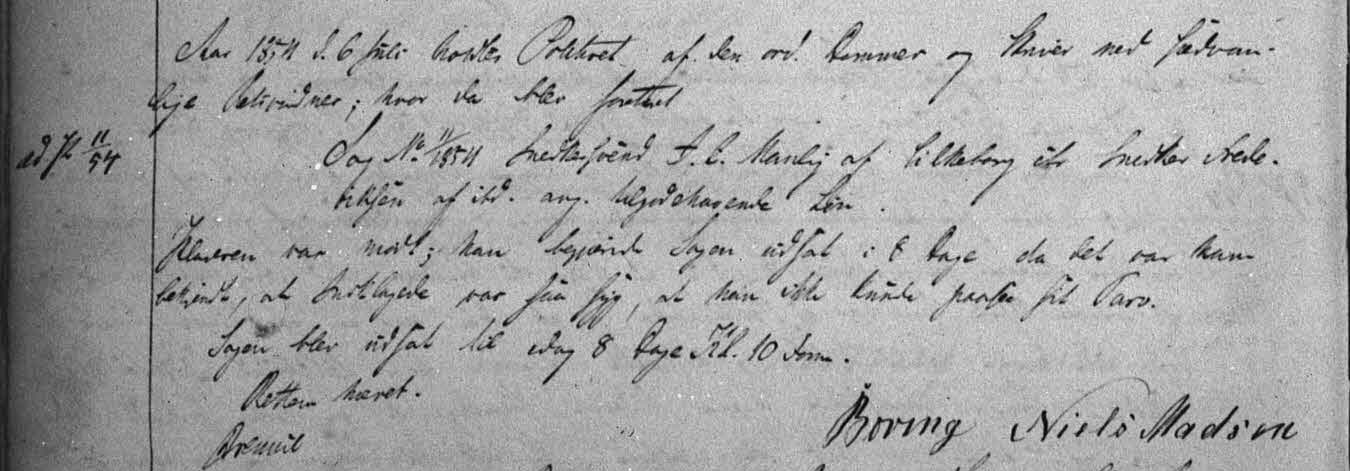 Aar 1854 d. 6 Juli holdtes Politiret af den ord. Dommer og Skriver med sædvan-
lige Retsvidner; hvor da blev foretaget
ad No 11/54
Sag No 11/1854 Snedkersvend F. C. af Silkeborg ctr Snedker Frede-
riksen af itd. ang. tilgodehavende Løn.
Klageren var mødt; han begjærede Sagen udsat i 8 Dage da det var ham
bekjendt, at Indklagede var saa syg, at han ikke kunde paasee sit Tarv.
Sagen blev udsat til idag 8 Dage Kl. 10 Form.
Retten hævet.
Drewsen
Boring Niels Madsen